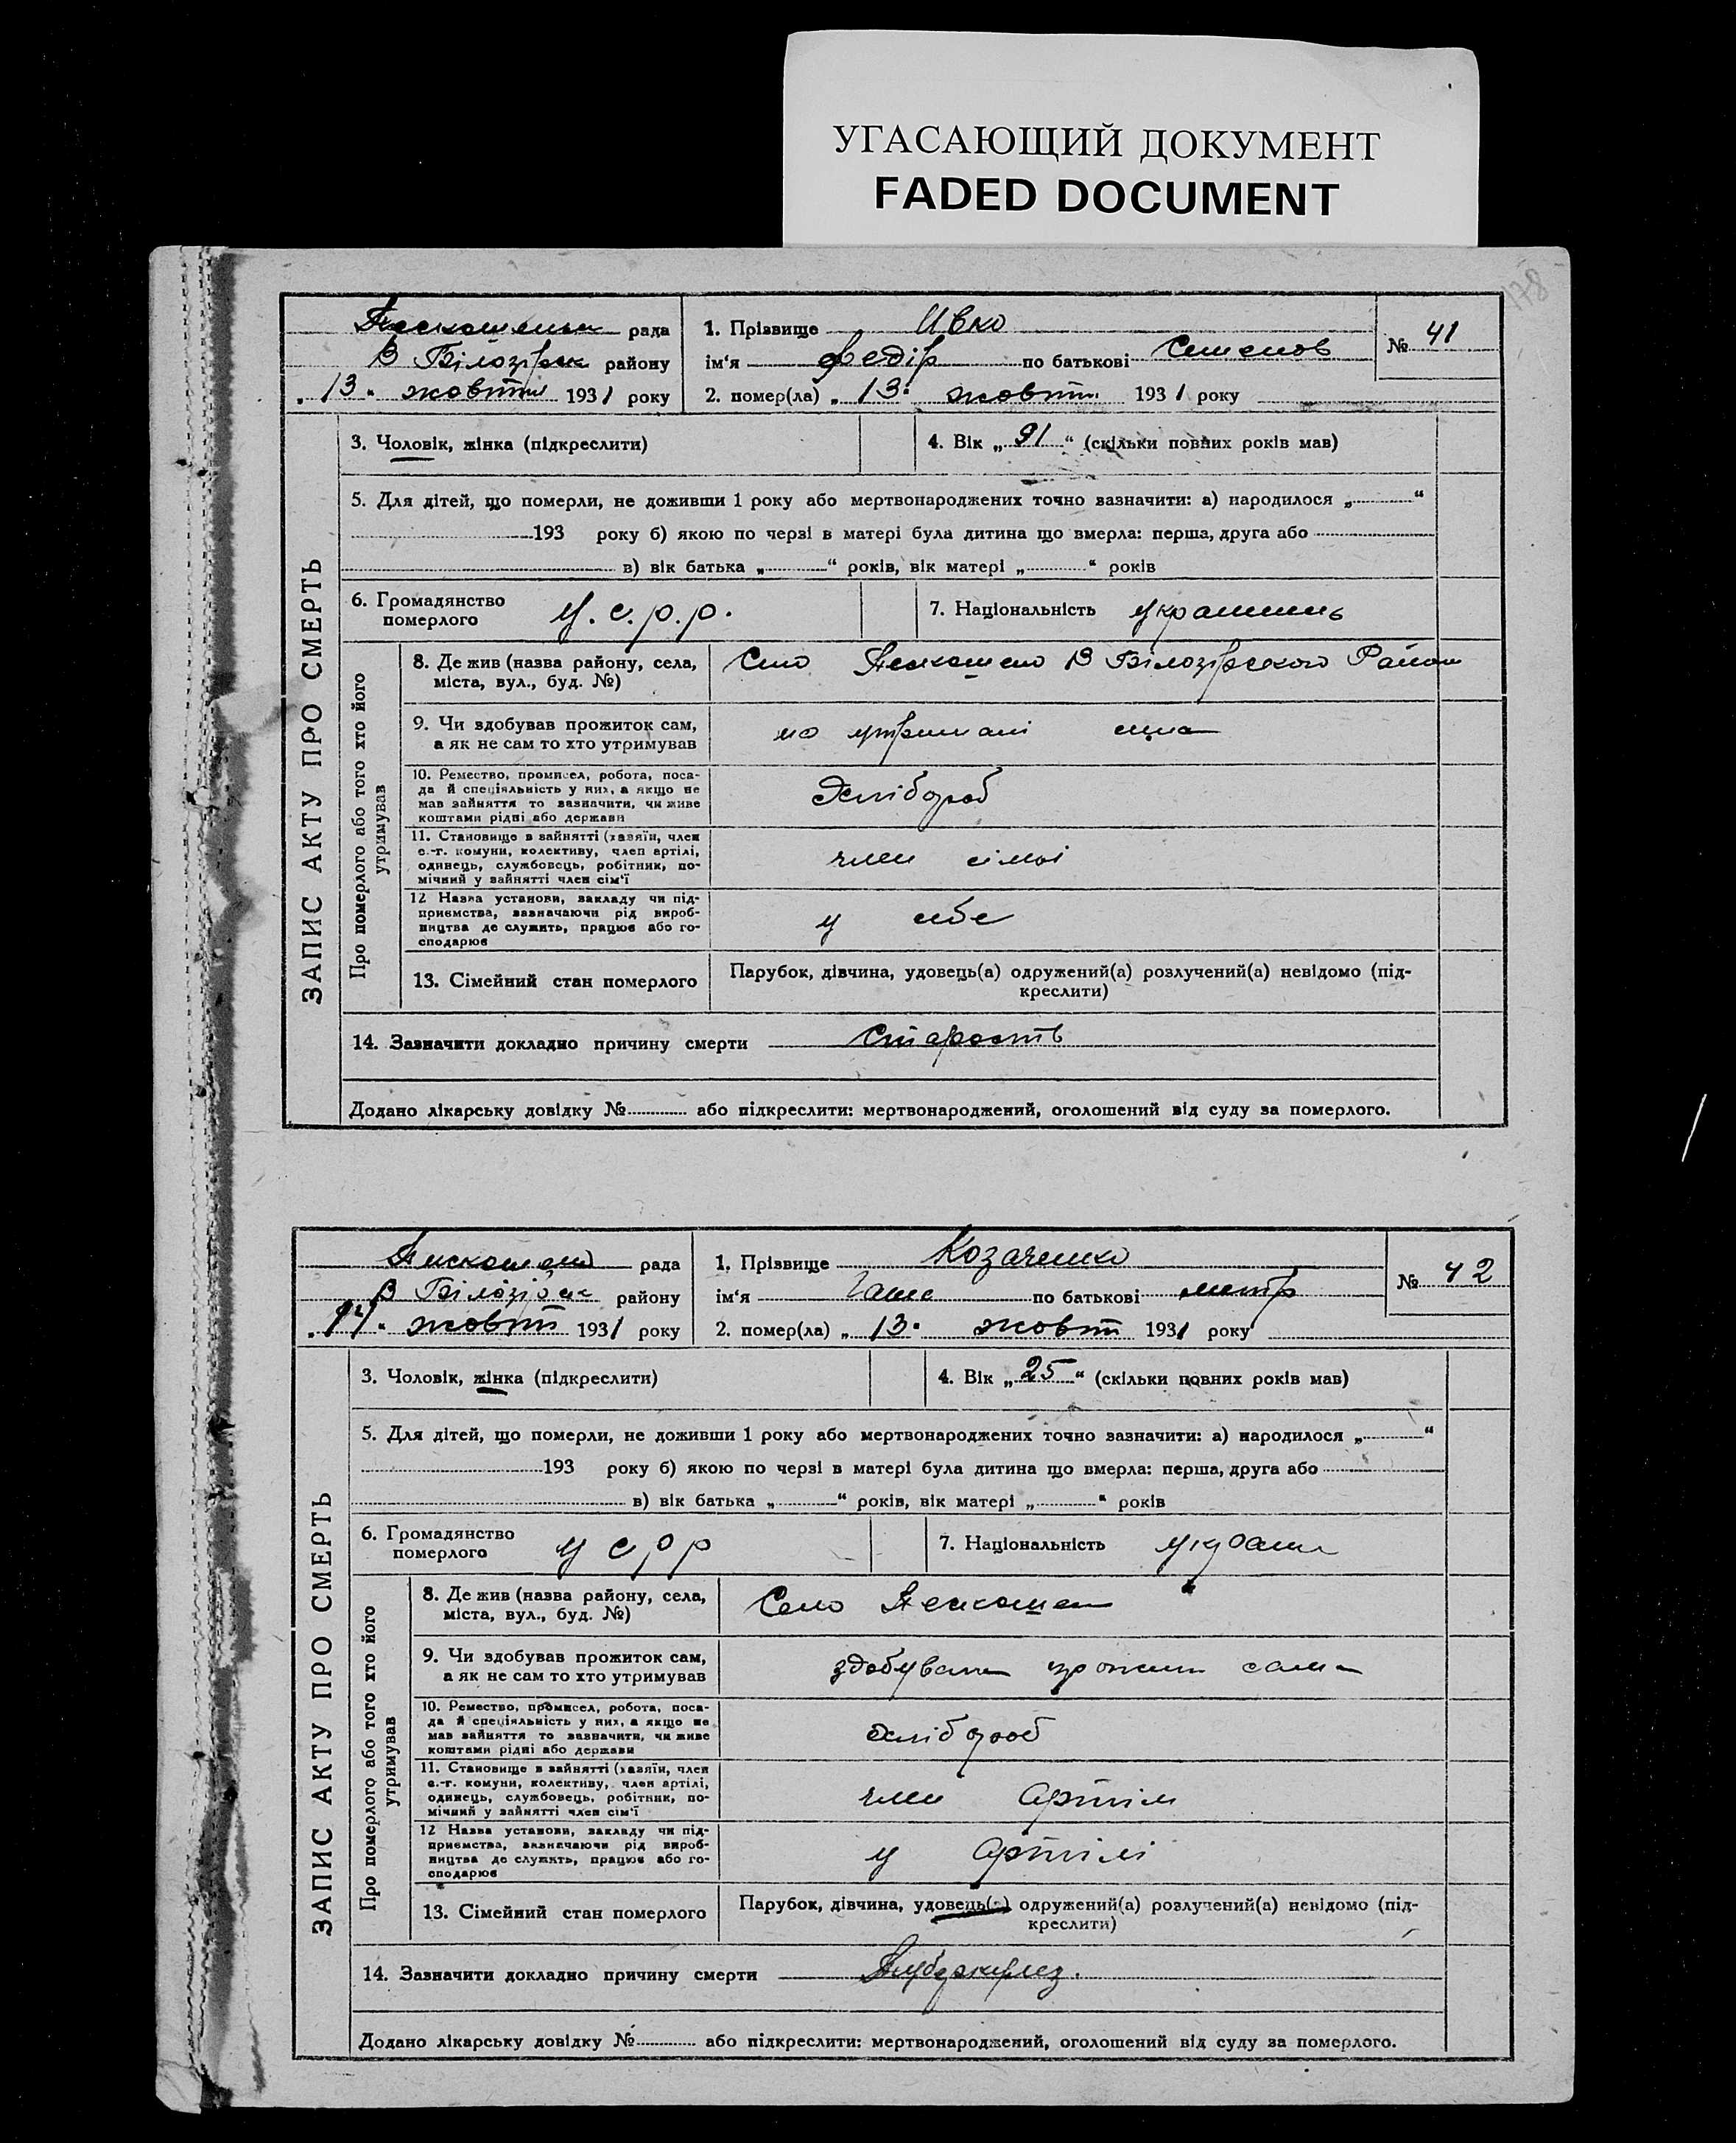 УГАСАЮЩИЙ ДОКУМЕНТ
FADED DOCUMENT
178
рада
В Білозірськ району
„ 13 " жовтня 1931 року
1. Прізвище Ивко
ім‘я Федір по батькові Семенов
2. помер(ла) „ 13 " жовтн. 1931 року
№ 41
ЗАПИС АКТУ ПРО СМЕРТЬ
3. Чоловік, жінка (підкреслити)
4. Вік „ 91 “ (скільки повних років мав)
5. Для дітей, що померли, не доживши 1 року або мертвонароджених точно зазначити: а) народилося „ “
193 року б) якою по черзі в матері була дитина що вмерла: перша, друга або
в) вік батька „ “ років, вік матері „ “ років
6. Громадянство
померлого
У.с.р.р.
7. Національність українець
Про померлого або того хто його
утримував
8. Де жив (назва району, села,
міста, вул., буд. №)
Село В Білозірського Район
9. Чи здобував прожиток сам,
а як не сам то хто утримував
на утримані сина
10. Ремество, промисел, робота, поса-
да й спеціяльність у них, а якщо не
мав зайняття то зазначити, чи живе
коштами рідні або держави
Хлібороб
11. Становище в зайнятті (хазяїн, член
с.-г. комуни, колективу, член артілі,
одинець, службовець, робітник, по-
мічний у зайнятті член сім‘ї
член сімьі
12 Назва установи, закладу чи під-
приємства, зазначаючи рід вироб-
ництва де служить, працює або го-
сподарює
у себе
13. Сімейний стан померлого
Парубок, дівчина, удовець(а) одружений(а) розлучений(а) невідомо (під-
креслити)
14. Зазначити докладно причину смерти Старость
Додано лікарську довідку № або підкреслити: мертвонароджений, оголошений від суду за померлого.
рада
В Білозірск району
„ 14 " жовтн 1931 року
1. Прізвище Козаченко
ім‘я по батькові
2. помер(ла) „ 13 " жовтн 1931 року
№ 42
ЗАПИС АКТУ ПРО СМЕРТЬ
3. Чоловік, жінка (підкреслити)
4. Вік „ 25 “ (скільки повних років мав)
5. Для дітей, що померли, не доживши 1 року або мертвонароджених точно зазначити: а) народилося „ “
193 року б) якою по черзі в матері була дитина що вмерла: перша, друга або
в) вік батька „ “ років, вік матері „ “ років
6. Громадянство
померлого
У с р р
7. Національність
Про померлого або того хто його
утримував
8. Де жив (назва району, села,
міста, вул., буд. №)
Село
9. Чи здобував прожиток сам,
а як не сам то хто утримував
здобувала прожит сама
10. Ремество, промисел, робота, поса-
да й спеціяльність у них, а якщо не
мав зайняття то зазначити, чи живе
коштами рідні або держави
хлібороб
11. Становище в зайнятті (хазяїн, член
с.-г. комуни, колективу, член артілі,
одинець, службовець, робітник, по-
мічний у зайнятті член сім‘ї
член Артіли
12 Назва установи, закладу чи під-
приємства, зазначаючи рід вироб-
ництва де служить, працює або го-
сподарює
у Артілі
13. Сімейний стан померлого
Парубок, дівчина, удовець(а) одружений(а) розлучений(а) невідомо (під-
креслити)
14. Зазначити докладно причину смерти Туберкулез.
Додано лікарську довідку № або підкреслити: мертвонароджений, оголошений від суду за померлого.